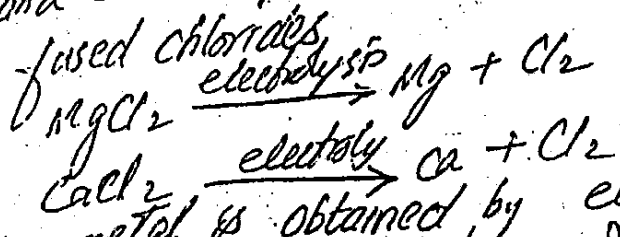 and
fused chlorides,
MgCl2 electrolysis → Mg + Cl2
CaCl2 electroly → Ca + Cl2
metal is obtained by el